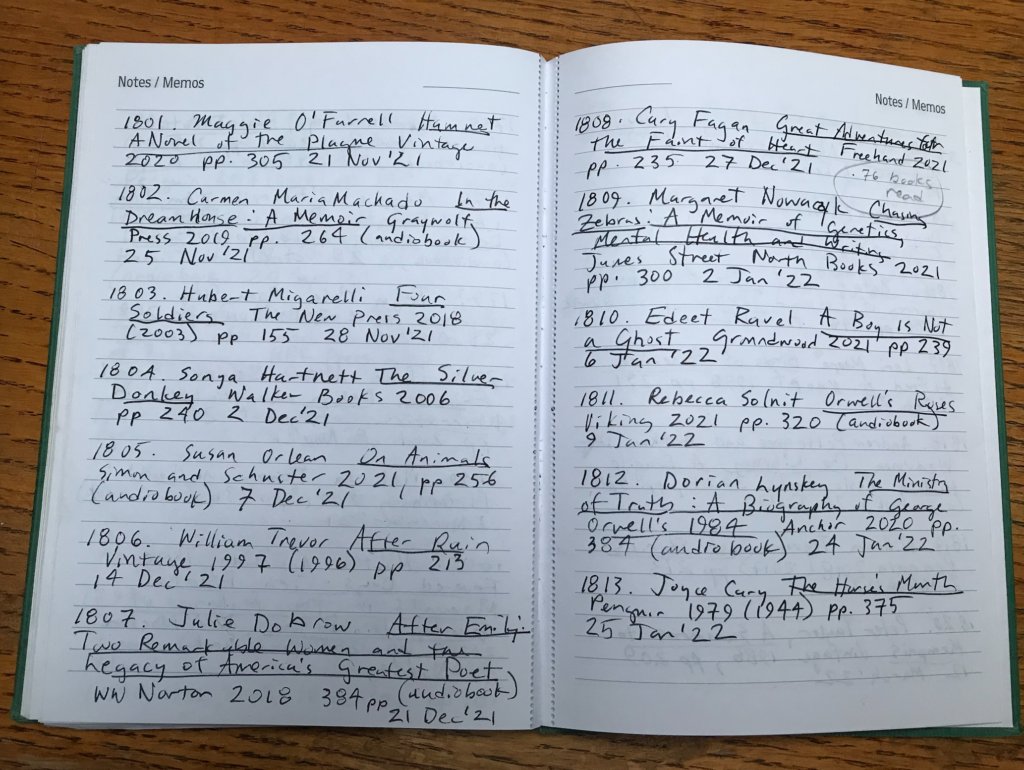 Notes / Memos
1801. Maggie O'Farrell Hamnet
A Novel of the Plague Vintage
2020 pp. 305 21 Nov '21
1802. Carmen Maria Machado In the
Dream House: A Memoir Graywolf
Press 2019 pp. 264 (audiobook)
25 Nov '21
1803. Hubert Migarelli Four
Soldiers The New Press 2018
(2003) pp 155 28 Nov '21
1804. Sonya Hartnett The Silver
Donkey Walker Books 2006
pp 240 2 Dec '21
1805. Susan Orlean On Animals
Simon and Schuster 2021, pp 256
(audiobook) 7 Dec '21
1806. William Trevor After Rain
Vintage 1997 (1996) pp 213
14 Dec '21
1807. Julie Dobrow After Emily:
Two Remarkable Women and the
Legacy of America's Greatest Poet
WW Norton 2018 384 pp (audiobook)
21 Dec '21
Notes / Memos
1808. Cary Fagan Great Adventures for
the Faint of Heart Freehand 2021
pp. 235 27 Dec '21
. 76 books
read
1809. Margaret Nowaczyk Chasing
Zebras: A Memoir of Genetics,
Mental Health and Writing
James Street North Books 2021
pp. 300 2 Jan '22
1810. Edeet Ravel A Boy is Not
a Ghost Groundwood 2021 pp 239
6 Jan '22
1811. Rebecca Solnit Orwell's Roses
Viking 2021 pp. 320 (audiobook)
9 Jan '22
1812. Dorian Lynskey The Ministry
of Truth: A Biography of George
Orwell's 1984 Anchor 2020 pp.
384 (audiobook) 24 Jan '22
1813. Joyce Cary The Horse's Mouth
Penguin 1979 (1944) pp. 375
25 Jan '22